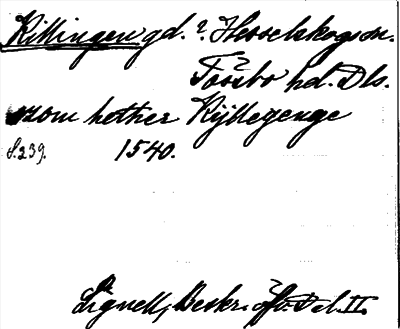 Killingen gd. i Hesselskogs sn.
Tössbo hd. Dls.
som hether Kyllegenge
S. 239. 1540.
Lignell, Beskr. öfv. Dal. II.